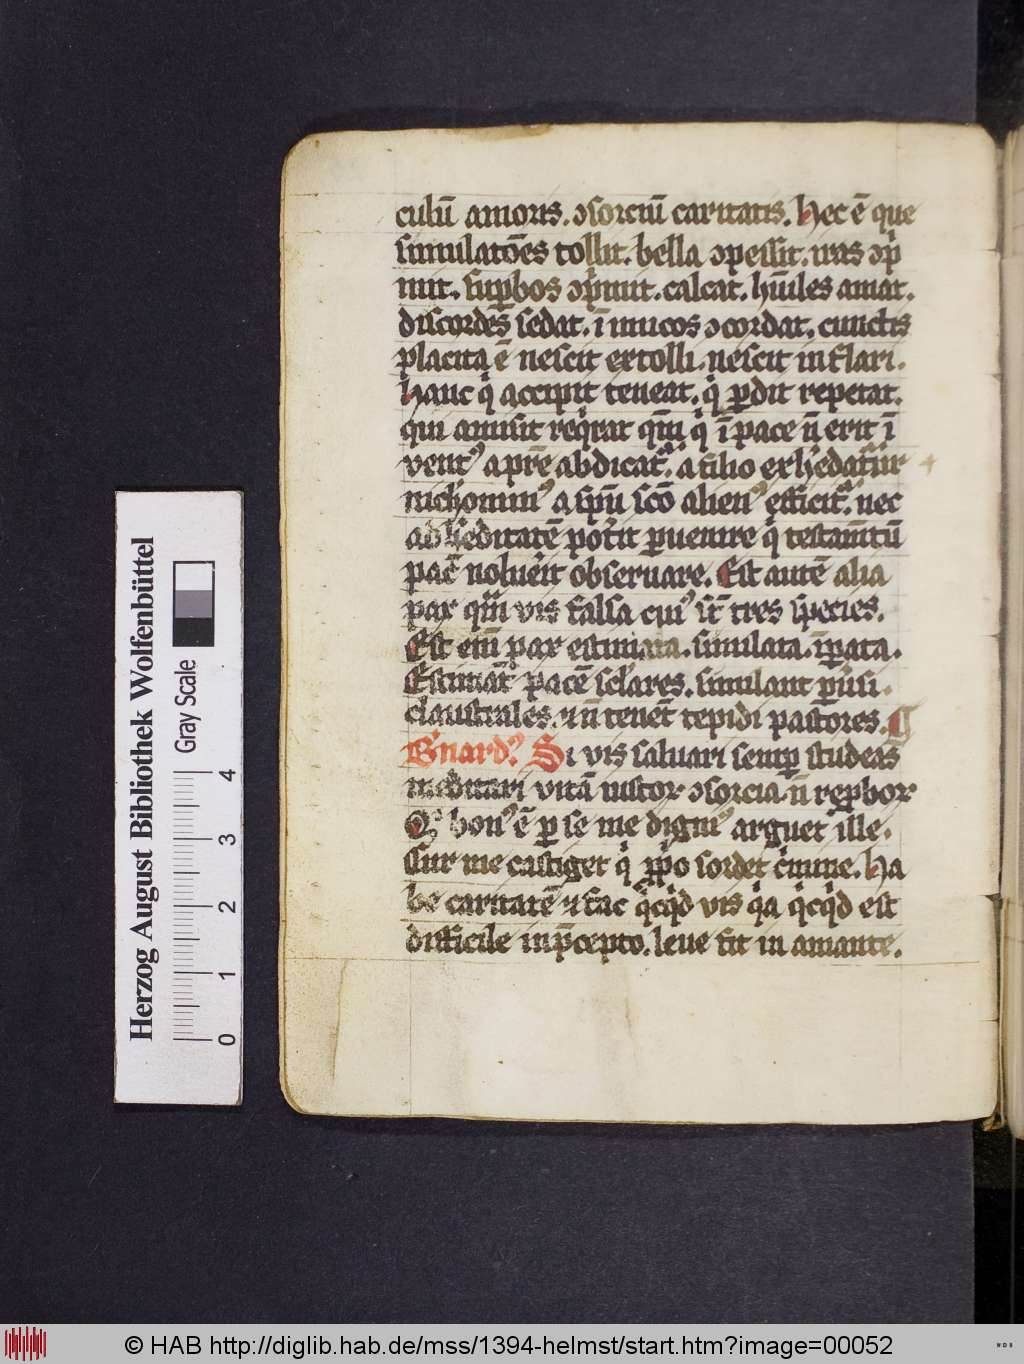 culū amoris. ↄsorciū caritatis. Hec ē que
simulatōes tollit. bella ↄpessit. iras ↄp̄
mit. suꝑbos ↄp̍mit. calcat. hūiles amat.
discordes sedat. ī imicos ↄcordat. cunctis
placita ē nescit extolli. nescit inflari.
Hanc q̍ accipit teneat. q̍ ꝑdit repetat.
qui amisit reqͥrat qm̄ q̍ ī pace n̄ erit ī
ventꝰ a pr̄e abdicatᷣ. a filio exh̓edatᷣ ur
nichomin ꝰ a sp̄u sc̄o alienꝰ efficitᷣ. nec
ad h̓editatē pot̓it ꝑuenire q̍ testam̄tū
pac̄ noluer̄it obseruare. Est autē alia
pax qm̄ vis falsa cuiꝰ st̄ tres species.
Est eni᷒ pax estimata. simulata. īꝑata.
Estimāt pacē scl̓ares. simulant ꝑuersi.
claustrales. ⁊ n̄ tenet̄ tepidi pastores. ¶
B̓nardꝰ. Si vis saluari semꝑ studeas
meditari vitā iustor ↄsorcia. n̄ rep̱bor
Qͥ bonꝰ ē ꝑ se me dignꝰ arguet ille.
Cur me castiget q̍ ꝓp̍o sordet c̍mine. Ha
be caritatē ⁊ fac q̍cq̍d vis qͣa q̍cq̍d est
difficile in p̄cepto. leue fit in amante.
Herzog August Bibliothek Wolfenbüttel
Gray Scale
0 1 2 3 4
© HAB http://diglib.hab.de/mss/1394-helmst/start.htm?image=00052